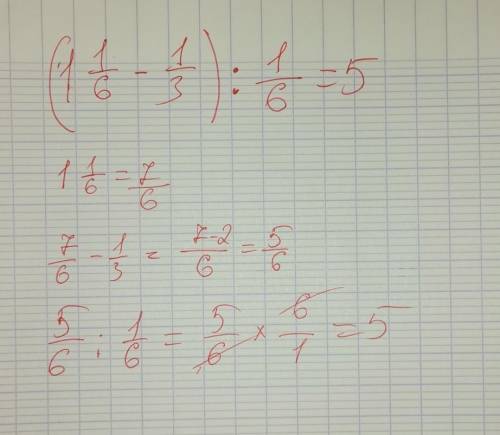 (1 1/6 - 1/3) : 1/6 = 5
1 1/6 = 7/6
7/6 - 1/3 = 7-2/6 = 5/6
5/6 : 1/6 = 5/6 × 6/1 = 5